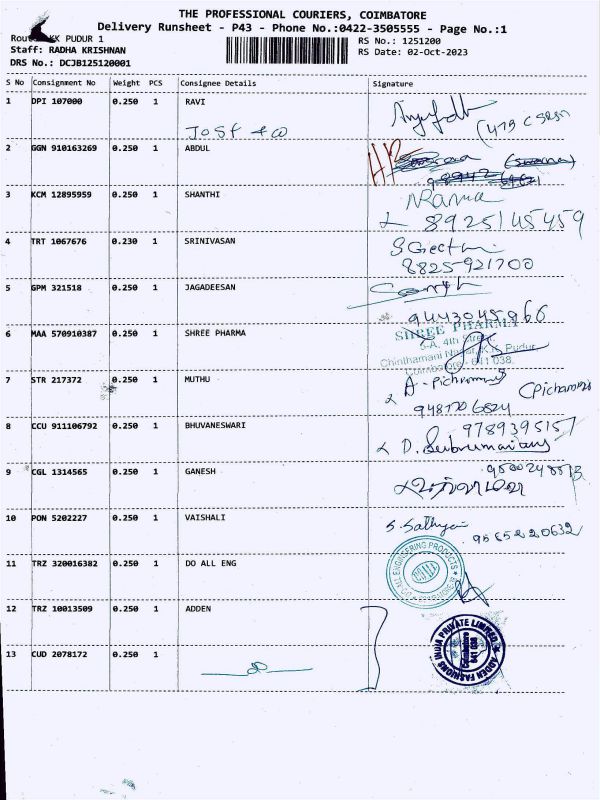 THE PROFESSIONAL COURIERS, COIMBATORE
Delivery Runsheet - P43 - Phone No.:0422-3505555 - Page No.:1
KK PUDUR 1
RS No.: 1251200
Staff: RADHA KRISHNAN
RS Date: 02-Oct-2023
DRS No.: DCJB125120001
S No Consignment No Weight PCS Consignee Details Signature
1 DPI 107000 0.250 1 RAVI
2 GGN 910163269 0.250 1 ABDUL
3 KCM 12895959 0.250 1 SHANTHI
Rama
8925145459
4 TRT 1067676 0.230 1 SRINIVASAN
S Geetha
8825-921700
5 GPM 321518 0.250 1 JAGADEESAN
9443045966
6 MAA 570910387 0.250 1 SHREE PHARMA
SHREE PHARMA
5-A, 4th Street,
Chinthamani Nagar, K.K. Pudur,
Coimbatore - 641 038.
7 STR 217372 0.250 1 MUTHU
A-
8 CCU 911106792 0.250 1 BHUVANESWARI
9789395157
D.
9 CGL 1314565 0.250 1 GANESH
10 PON 5202227 0.250 1 VAISHALI
S. Sathya
11 TRZ 320016382 0.250 1 DO ALL ENG
DO-ALL ENGINEERING PRODUCTS
12 TRZ 10013509 0.250 1 ADDEN
ADDEN FASHIONS INDIA PRIVATE LIMITED
Coimbatore
641 038
13 CUD 2078172 0.250 1